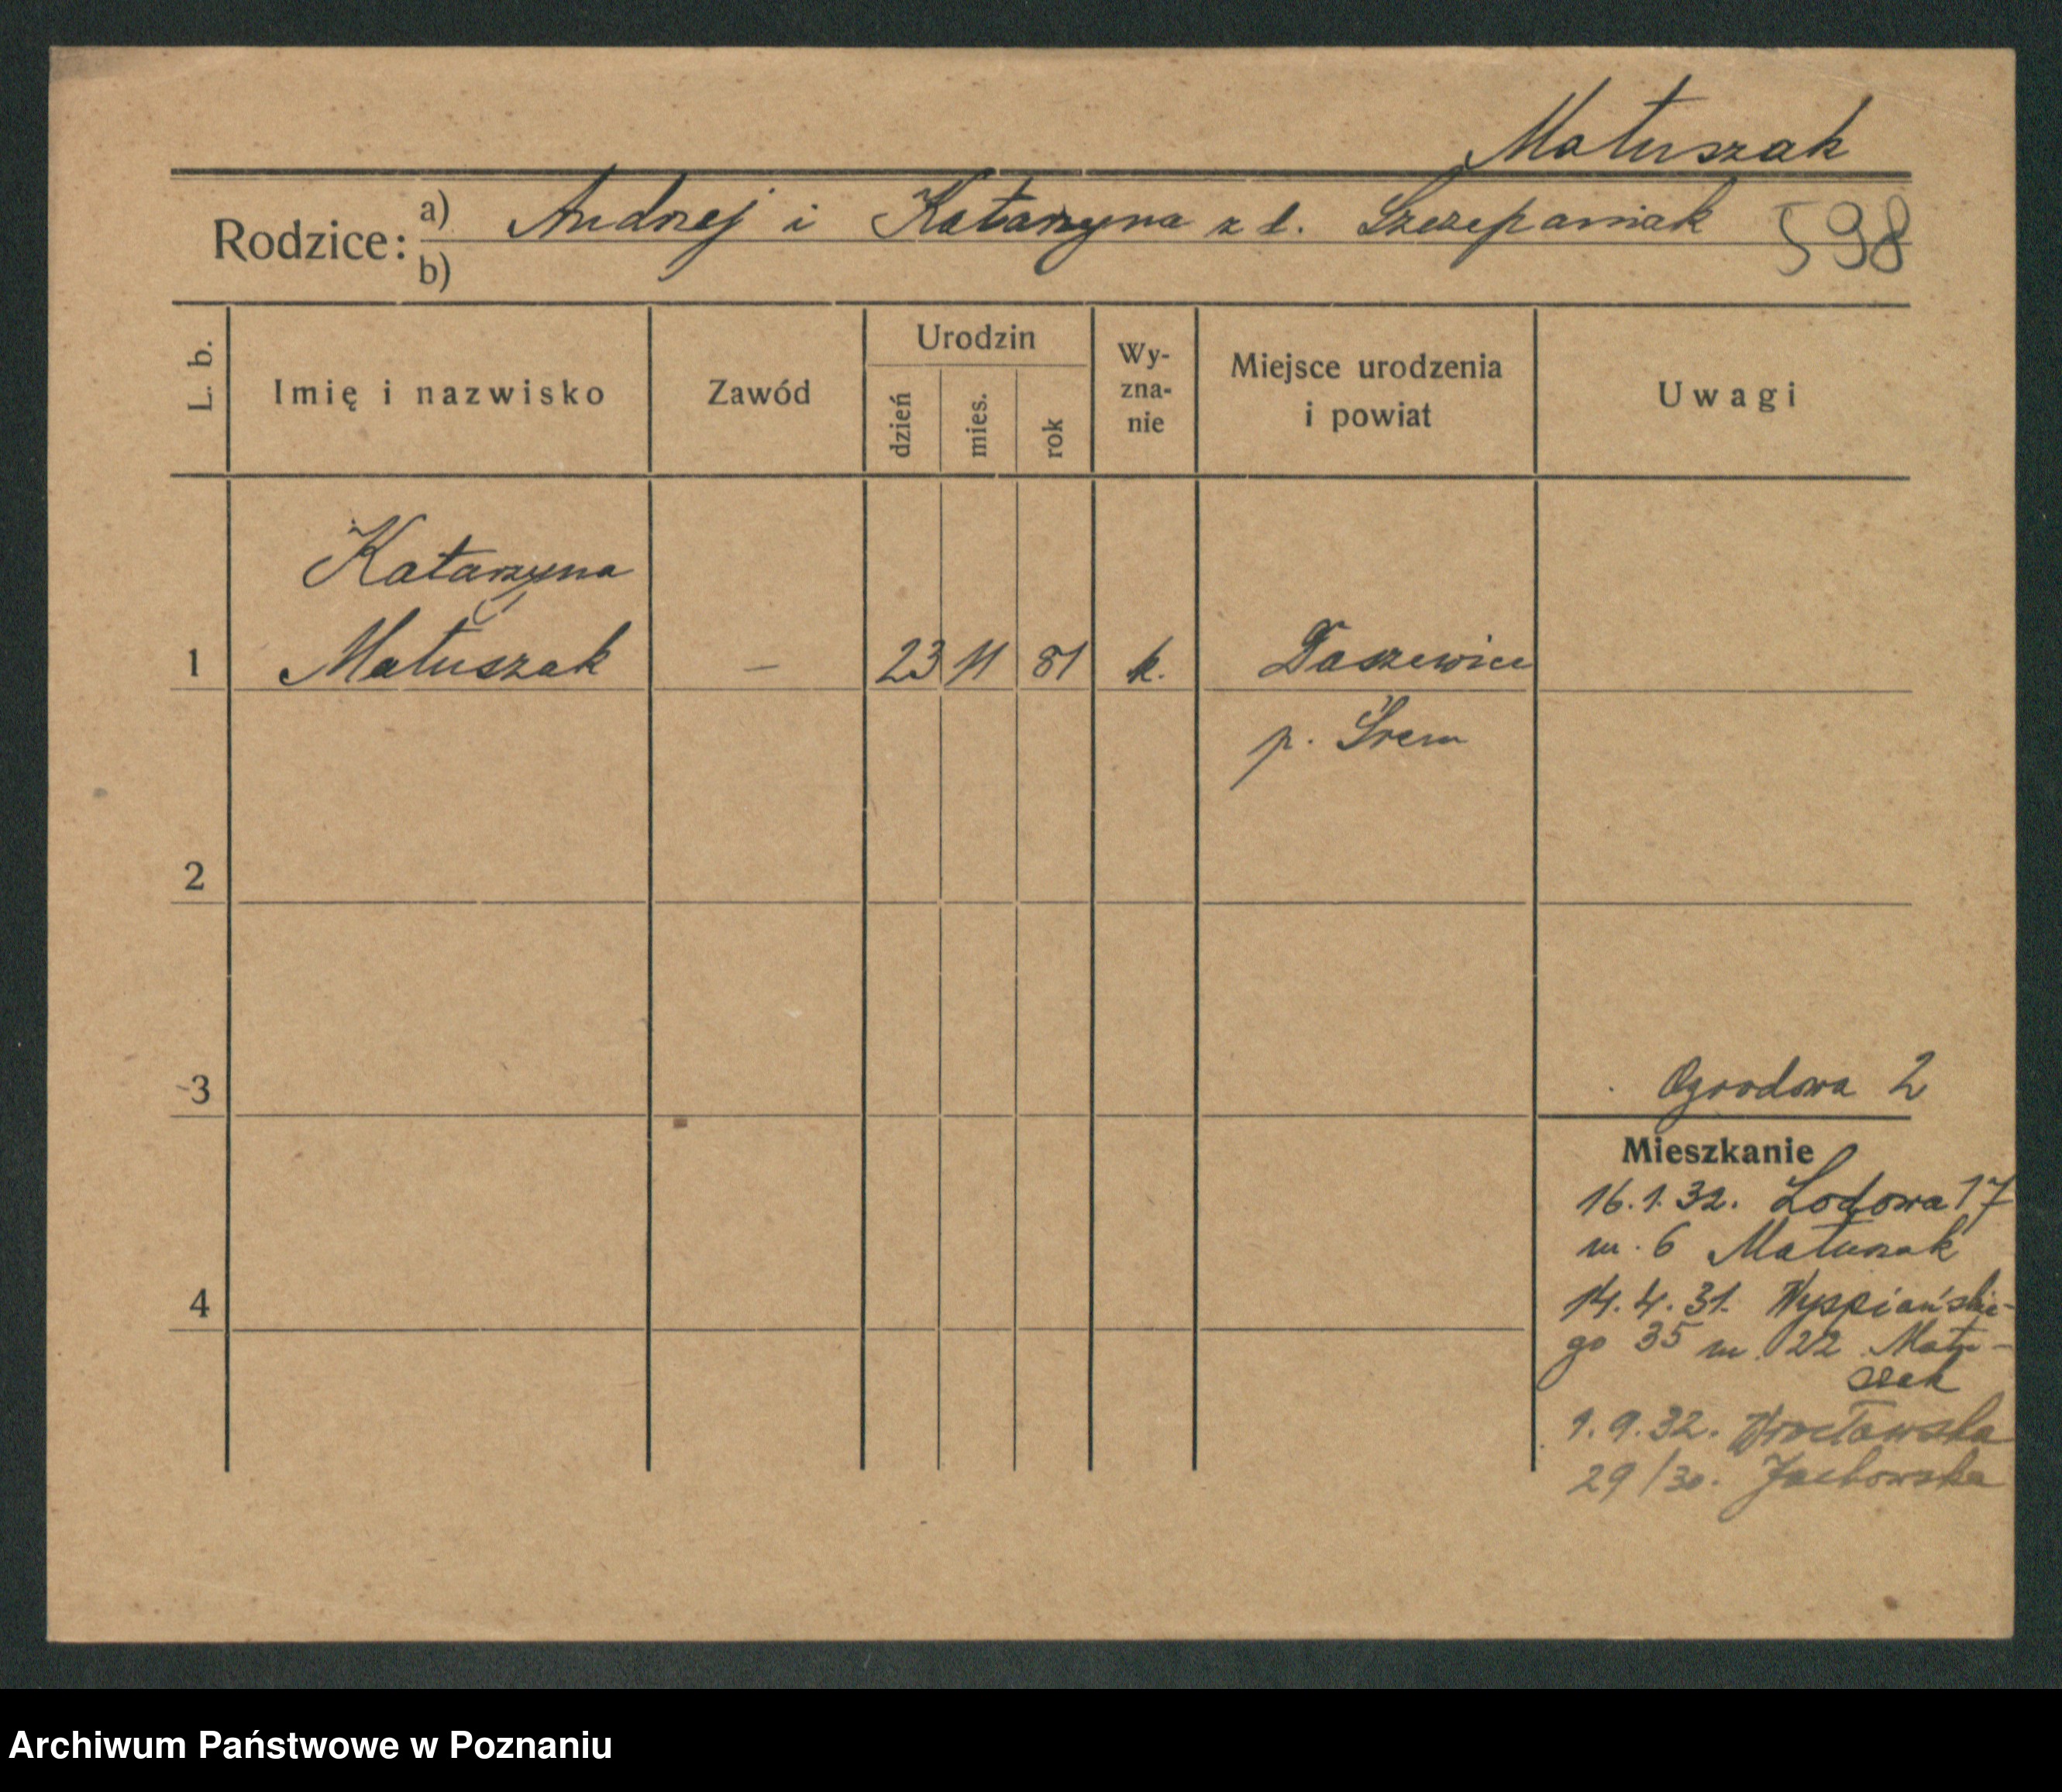 Matuszak
Rodzice: a) Andrzej i Katarzyna z d. Szczepaniak 598
b)
L. b. Imię i nazwisko Zawód Urodzin dzień mies. rok Wy-zna-nie Miejsce urodzenia i powiat Uwagi
Katarzyna
1 Matuszak – 23 11 81 k. Daszewice
p. Śrem
2
3 Ogrodowa 2
Mieszkanie
16.1.32. Lodowa 17
m. 6 Matuszak
4 14.4.31. Wyspiańskie-
go 35 m. 22 Matu-
szak
1.9.32. Wrocławska
29/30.
Archiwum Państwowe w Poznaniu